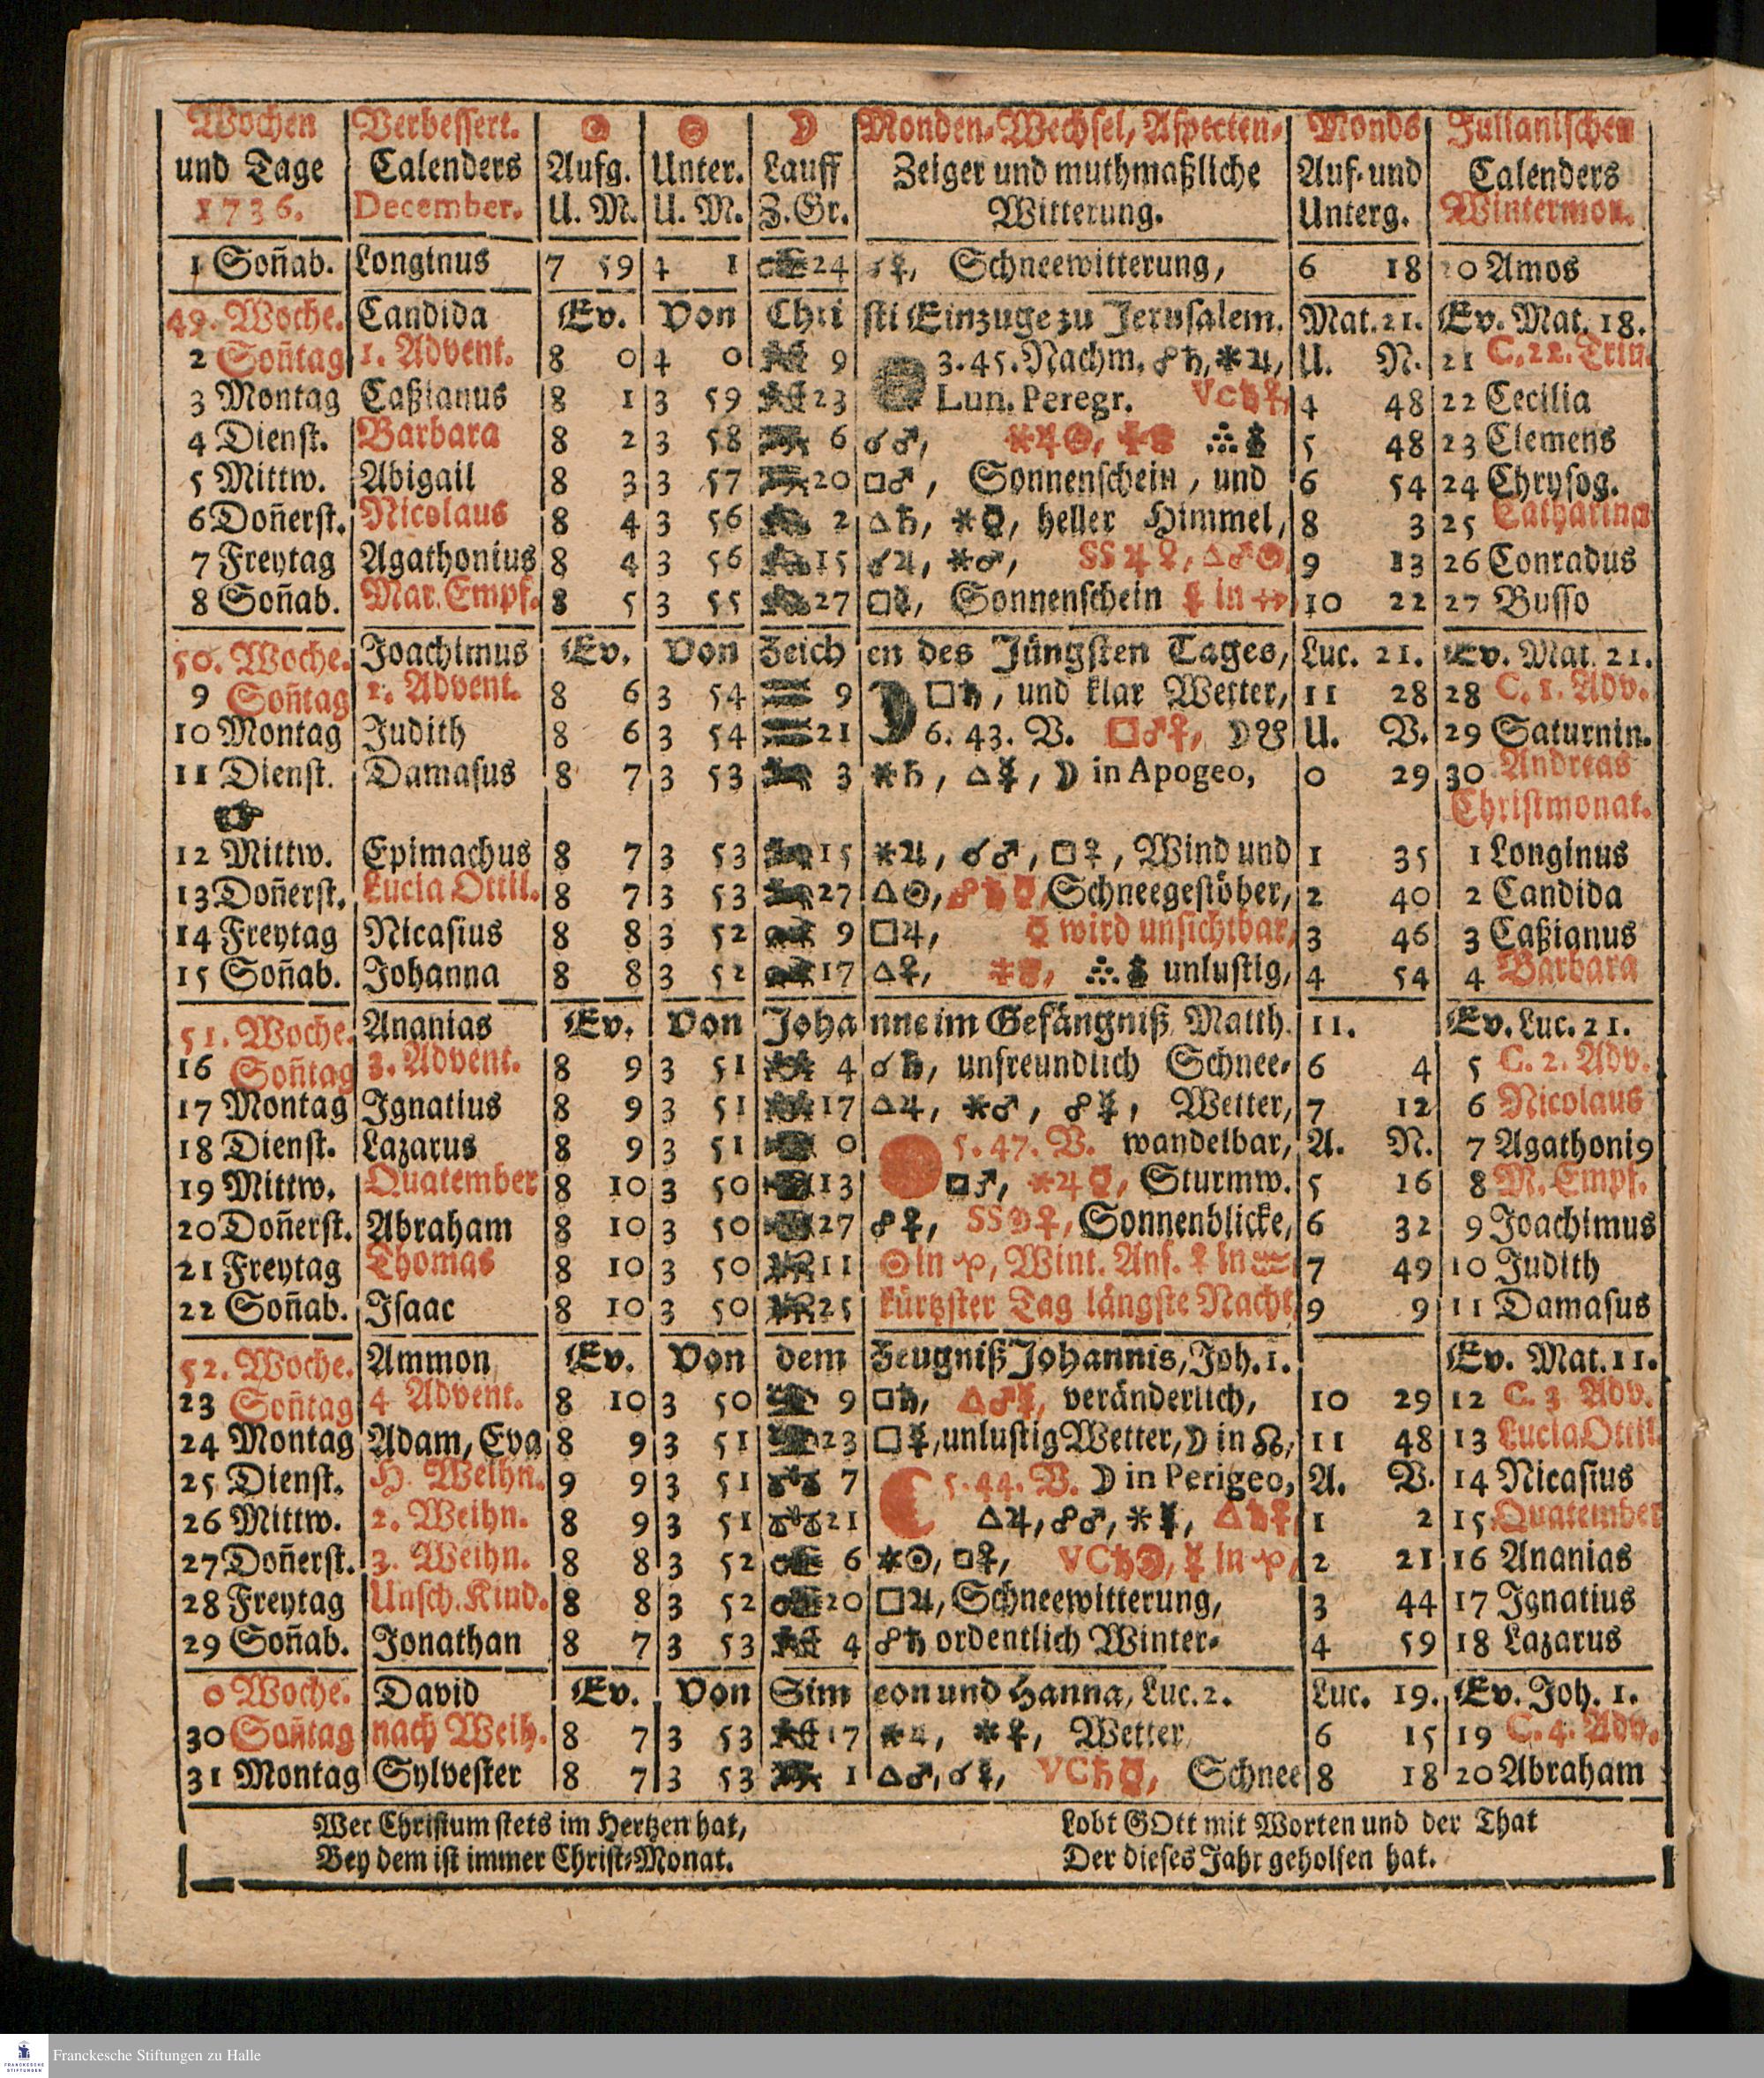 Wochen Verbessert. ☉ ☉ ☽ Monden-Wechsel, Aspecten- Monds Julianischen
und Tage Calenders Aufg. Unter. Lauff Zeiger und muthmaßliche Auf- und Calenders
1736. December. U. M. U. M. Z. Gr. Witterung. Unterg. Wintermon.
1 Soñab. Longinus 7 59 4 1 24 ☌☿, Schneewitterung, 6 18 20 Amos
49. Woche. Candida Ev. Von Chri sti Einzuge zu Jerusalem. Mat. 21. Ev. Mat. 18.
2 Soñtag 1. Advent. 8 0 4 0 9 3. 45. Nachm. ☍♄, ⚹♃, U. N. 21 C. 22. Trin.
3 Montag Caßianus 8 1 3 59 23 Lun. Peregr. VC♄☿, 4 48 22 Cecilia
4 Dienst. Barbara 8 2 3 58 6 ☌♂, 5 48 23 Clemens
5 Mittw. Abigail 8 3 3 57 20 □♂, Sonnenschein, und 6 54 24 Chrysog.
6 Doñerst. Nicolaus 8 4 3 56 2 △♄, ⚹☿, heller Himmel, 8 3 25 Catharina
7 Freytag Agathonius 8 4 3 56 15 ☌♃, ⚹♂, SS♃♀, △♂☉, 9 13 26 Conradus
8 Soñab. Mar. Empf. 8 5 3 55 27 □☿, Sonnenschein ☿ in ♐, 10 22 27 Busso
50. Woche. Joachimus Ev. Von Zeich en des Jüngsten Tages, Luc. 21. Ev. Mat. 21.
9 Soñtag 2. Advent. 8 6 3 54 9 □♄, und klar Wetter, 11 28 28 C. 1. Adv.
10 Montag Judith 8 6 3 54 21 6. 43. V. □♂♀, ☽☋ U. V. 29 Saturnin.
11 Dienst. Damasus 8 7 3 53 3 ⚹♄, △☿, ☽ in Apogeo, 0 29 30 Andreas
Christmonat.
12 Mittw. Epimachus 8 7 3 53 15 ⚹♃, ☌♂, □♀, Wind und 1 35 1 Longinus
13 Doñerst. Lucia Ottil. 8 7 3 53 27 △☉, ☍♄☿, Schneegestöber, 2 40 2 Candida
14 Freytag Nicasius 8 8 3 52 9 □♃, ☿ wird unsichtbar, 3 46 3 Caßianus
15 Soñab. Johanna 8 8 3 52 17 △♀, unlustig, 4 54 4 Barbara
51. Woche. Ananias Ev. Von Joha nne im Gefängniß Matth. 11. Ev. Luc. 21.
16 Soñtag 3. Advent. 8 9 3 51 4 ☌♄, unfreundlich Schnee- 6 4 5 C. 2. Adv.
17 Montag Ignatius 8 9 3 51 17 △♃, ⚹♂, ☍☿, Wetter, 7 12 6 Nicolaus
18 Dienst. Lazarus 8 9 3 51 0 5. 47. V. wandelbar, A. N. 7 Agathoni9
19 Mittw. Quatember 8 10 3 50 13 □♂, ⚹♃☿, Sturmw. 5 16 8 M. Empf.
20 Doñerst. Abraham 8 10 3 50 27 ☍♀, SS♀, Sonnenblicke, 6 32 9 Joachimus
21 Freytag Thomas 8 10 3 50 11 ☉ in ♑, Wint. Anf. ♀ in ♒ 7 49 10 Judith
22 Soñab. Isaac 8 10 3 50 25 kürtzster Tag längste Nacht 9 9 11 Damasus
52. Woche. Ammon Ev. Von dem Zeugniß Johannis, Joh. 1. Ev. Mat. 11.
23 Soñtag 4 Advent. 8 10 3 50 9 □♄, △♂☿, veränderlich, 10 29 12 C. 3. Adv.
24 Montag Adam, Eva 8 9 3 51 23 □☿, unlustig Wetter, ☽ in ☊, 11 48 13 Lucia Ottil.
25 Dienst. H. Weihn. 9 9 3 51 7 5. 44. V. ☽ in Perigeo, A. V. 14 Nicasius
26 Mittw. 2. Weihn. 8 9 3 51 21 △♃, ☍♂, ⚹☿, △♄♀ 1 2 15 Quatember
27 Doñerst. 3. Weihn. 8 8 3 52 6 ⚹☉, □♀, VC♄☉, ☿ in ♑, 2 21 16 Ananias
28 Freytag Unsch. Kind. 8 8 3 52 20 □♃, Schneewitterung, 3 44 17 Ignatius
29 Soñab. Jonathan 8 7 3 53 4 ☍♄ ordentlich Winter- 4 59 18 Lazarus
0 Woche. David Ev. Von Sim eon und Hanna, Luc. 2. Luc. 19. Ev. Joh. 1.
30 Soñtag nach Weih. 8 7 3 53 17 ⚹♃, ⚹♀, Wetter 6 15 19 C. 4. Adv.
31 Montag Sylvester 8 7 3 53 1 △♂, ☌☿, VC♄☿, Schnee 8 18 20 Abraham
Wer Christum stets im Hertzen hat, Lobt GOtt mit Worten und der That
Bey dem ist immer Christ-Monat. Der dieses Jahr geholfen hat.
Franckesche Stiftungen zu Halle
FRANCKESCHE STIFTUNGEN